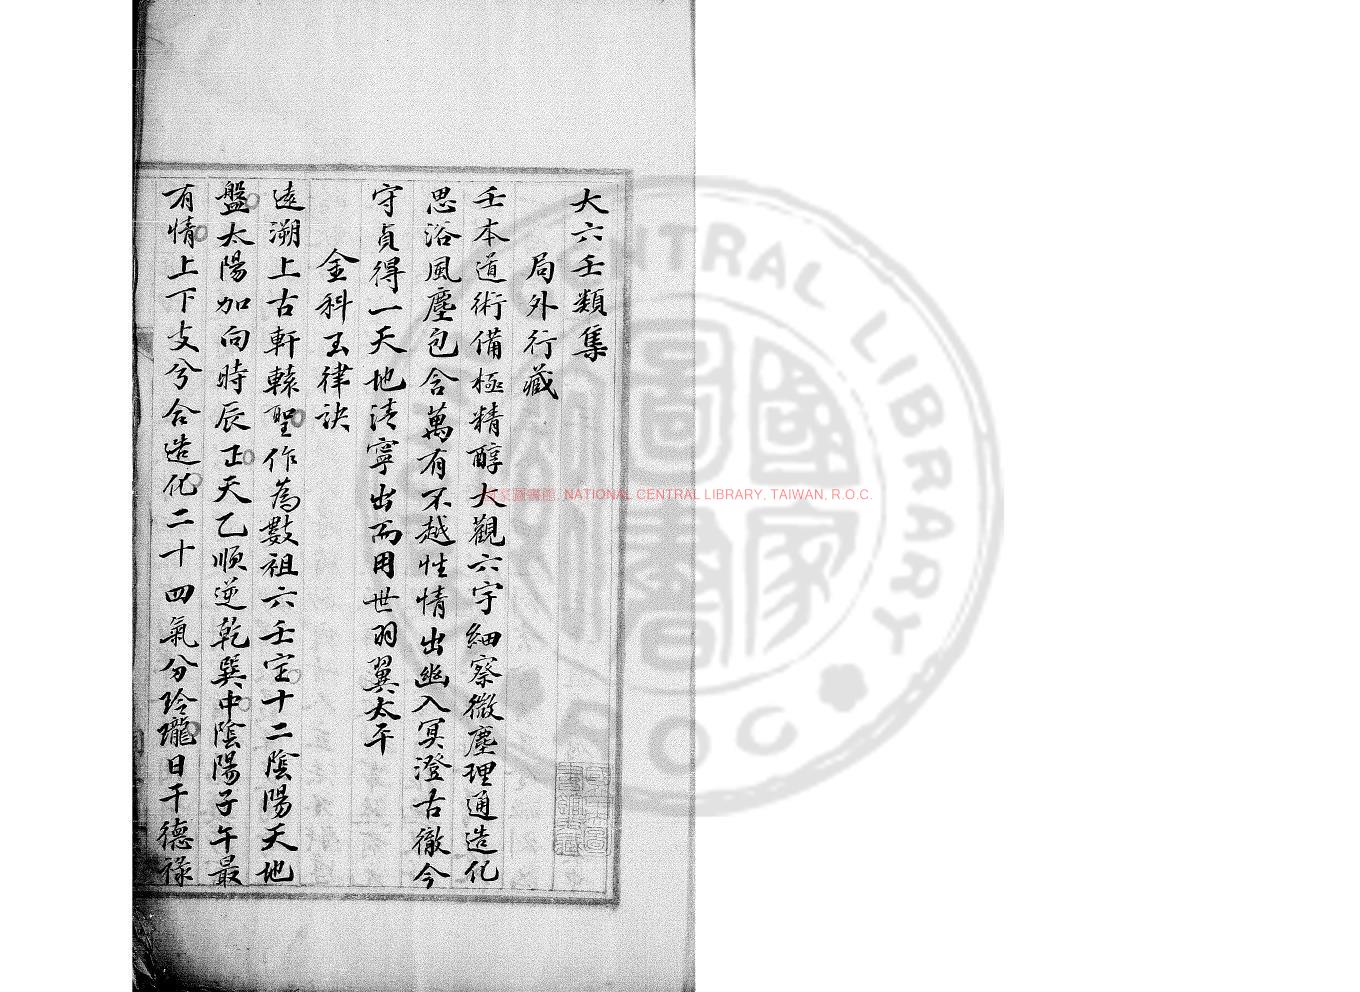 大六壬類集
局外行藏
壬本道術備極精醇大觀六宇細察微塵理通造化
思浴風塵包含萬有不越性情出幽入冥澄古徹今
守貞得一天地清寧出而用世羽翼太平
金科玉律訣
遠溯上古軒轅聖作為數祖六壬定十二陰陽天地
盤太陽加向時辰正天乙順逆乾巽中陰陽子午最
有情上下支兮合造化二十四氣分玲瓏日干德祿
國家圖書館 NATIONAL CENTRAL LIBRARY, TAIWAN, R.O.C.
CENTRAL LIBRARY
ROC
國家圖書館